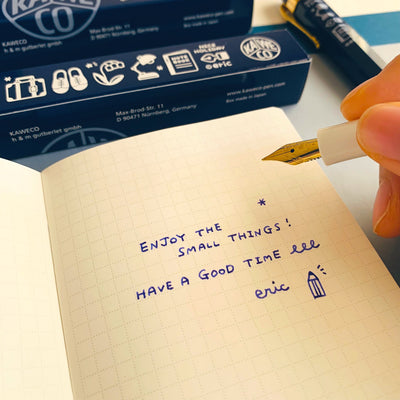 KAWECO
KAWECO
h & m gutberlet gmbh
Max-Brod Str. 11
D 90471 Nürnberg, Germany
www.kaweco-pen.com
Box made in Japan
NOTE BOOK
NEED HOLIDAY
eric
KAWECO
KAWECO
h & m gutberlet gmbh
Max-Brod Str. 11
D 90471 Nürnberg, Germany
www.kaweco-pen.com
Box made in Japan
ENJOY THE
SMALL THINGS!
HAVE A GOOD TIME
eric